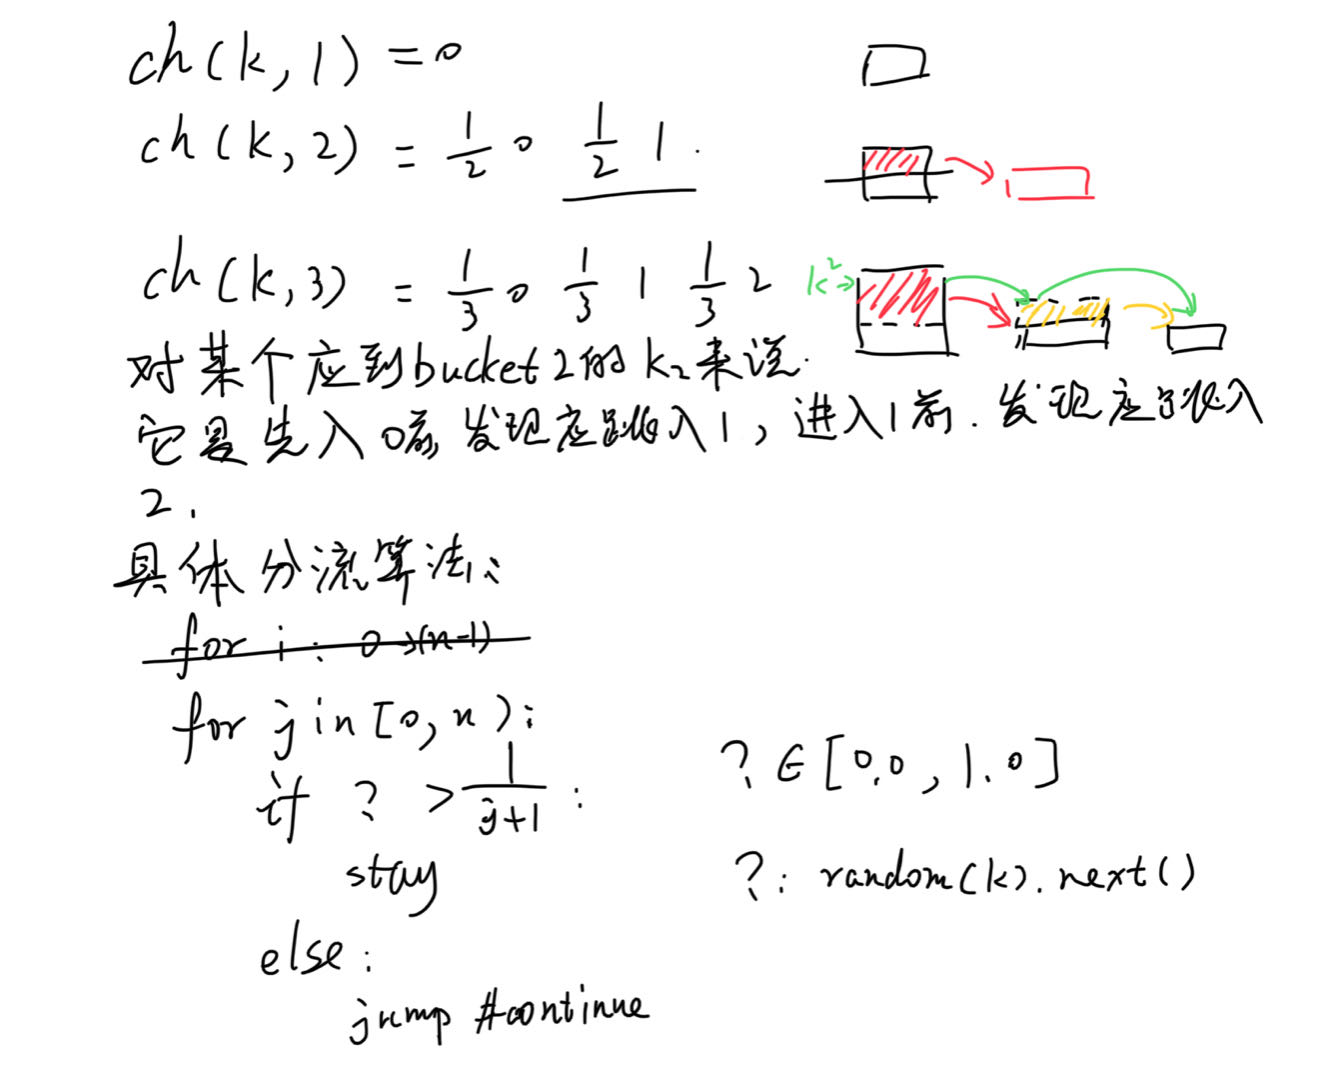 ch(k,1) = 0
ch(k,2) = 1/2 0 1/2 1.
ch(k,3) = 1/3 0 1/3 1 1/3 2
k²
对某个应到bucket2的k₂来说.
它是先入0前,发现应跳入1,进入1前.发现应跳入
2.
具体分流算法:
for i : 0→(n-1)
for j in [0,n):
if ? > 1/(j+1) :
stay
else:
jump #continue
? ∈ [0.0, 1.0]
?: random(k).next()